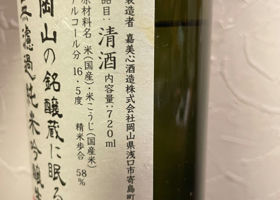 製造者 嘉美心酒造株式会社岡山県浅口市寄島町
品目:清酒 内容量:720ml
原材料名 米(国産)・米こうじ(国産米)
アルコール分 16.5度 精米歩合 58%
岡山の銘醸蔵に眠る
無濾過純米吟醸